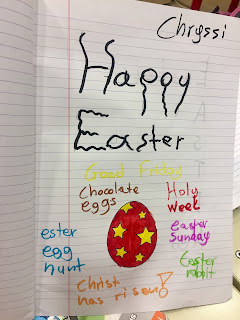 Chryssi
Happy
Easter
Good Friday
Chocolate
eggs
Holy
week
ester
egg
hunt
easter
Sunday
Easter
rabbit
Christ
has risen!